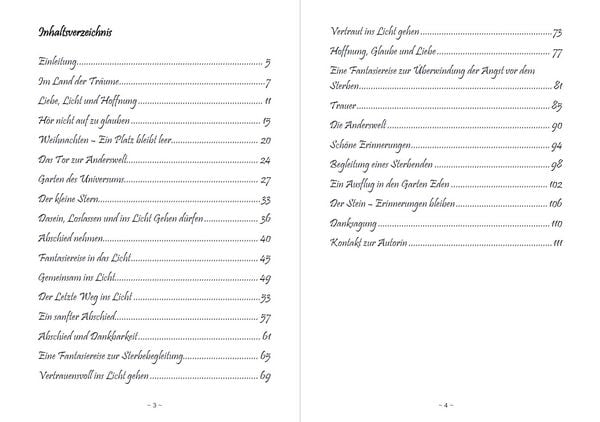 Inhaltsverzeichnis
Einleitung 5
Im Land der Träume 7
Liebe, Licht und Hoffnung 11
Hör nicht auf zu glauben 15
Weihnachten – Ein Platz bleibt leer 20
Das Tor zur Anderswelt 24
Garten des Universums 27
Der kleine Stern 33
Dasein, Loslassen und ins Licht Gehen dürfen 36
Abschied nehmen 40
Fantasiereise in das Licht 45
Gemeinsam ins Licht 49
Der Letzte Weg ins Licht 53
Ein sanfter Abschied 57
Abschied und Dankbarkeit 61
Eine Fantasiereise zur Sterbebegleitung 65
Vertrauensvoll ins Licht gehen 69
~ 3 ~
Vertraut ins Licht gehen 73
Hoffnung, Glaube und Liebe 77
Eine Fantasiereise zur Überwindung der Angst vor dem
Sterben 81
Trauer 85
Die Anderswelt 90
Schöne Erinnerungen 94
Begleitung eines Sterbenden 98
Ein Ausflug in den Garten Eden 102
Der Stein – Erinnerungen bleiben 106
Danksagung 110
Kontakt zur Autorin 111
~ 4 ~